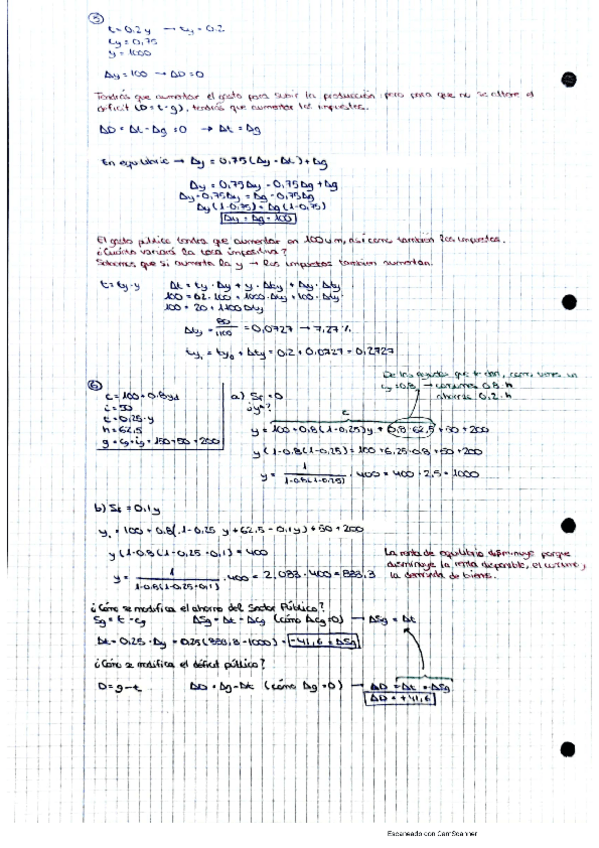 3
t = 0.2 y → ty = 0.2
cy = 0,75
y = 1000
Δy = 100 → ΔD = 0
Tendrás que aumentar el gasto para subir la producción pero para que no se altere el
déficit (D = t - g), tendrás que aumentar los impuestos.
ΔD = Δt - Δg = 0 → Δt = Δg
En equilibrio → Δy = 0,75 (Δy - Δt) + Δg
Δy = 0,75Δy - 0,75Δg + Δg
Δy - 0,75Δy = Δg - 0,75Δg
Δy (1-0,75) = Δg (1-0,75)
Δy = Δg = 100
El gasto público tendrá que aumentar en 100 um, así como también los impuestos.
¿Cuánto variará la tasa impositiva?
Sabemos que si aumenta la y → los impuestos también aumentan.
t = ty · y
Δt = ty · Δy + y · Δty + Δty · Δy
100 = 0.2 · 100 + 1000 · Δty + 100 · Δty
100 = 20 + 1100 Δty
Δty = 80/1100 = 0,0727 → 7,27 %
ty1 = ty0 + Δty = 0.2 + 0,0727 = 0,2727
6
c = 100 + 0.8yd
i = 50
t = 0,25 · y
h = 62,5
g = cg + ig = 150 + 50 = 200
a) Sf = 0
¿y*?
cy = 0,8 → consume 0.8 · h
ahorra 0,2 · h
c
y = 100 + 0,8 (1-0,25)y + 0,8 · 62,5 + 50 + 200
y (1-0.8 (1-0,25)) = 100 + 6.25·0.8 + 50 + 200
y = 1/1-0.8(1-0.25) · 400 = 400 · 2,5 = 1000
b) Sf = 0.1y
y1 = 100 + 0.8(1-0,25 y + 62,5 - 0,1y) + 50 + 200
y (1-0.8 (1-0,25 - 0,1) = 400
y = 1/1-0.8(1-0.25-0.1) · 400 = 2,083 · 400 = 833,3
La renta de equilibrio disminuye porque
disminuye la renta disponible, el consumo,
la demanda de bienes.
¿Cómo se modifica el ahorro del Sector Público?
Sg = t - cg ΔSg = Δt - Δcg (cómo Δcg = 0) → ΔSg = Δt
Δt = 0,25 · Δy = 0,25 (833,8 - 1000) = -41,6 = ΔSg
¿Cómo se modifica el déficit público?
D = g - t ΔD = Δg - Δt (cómo Δg = 0) → ΔD = -Δt = -ΔSg
ΔD = +41,6
Escaneado con CamScanner